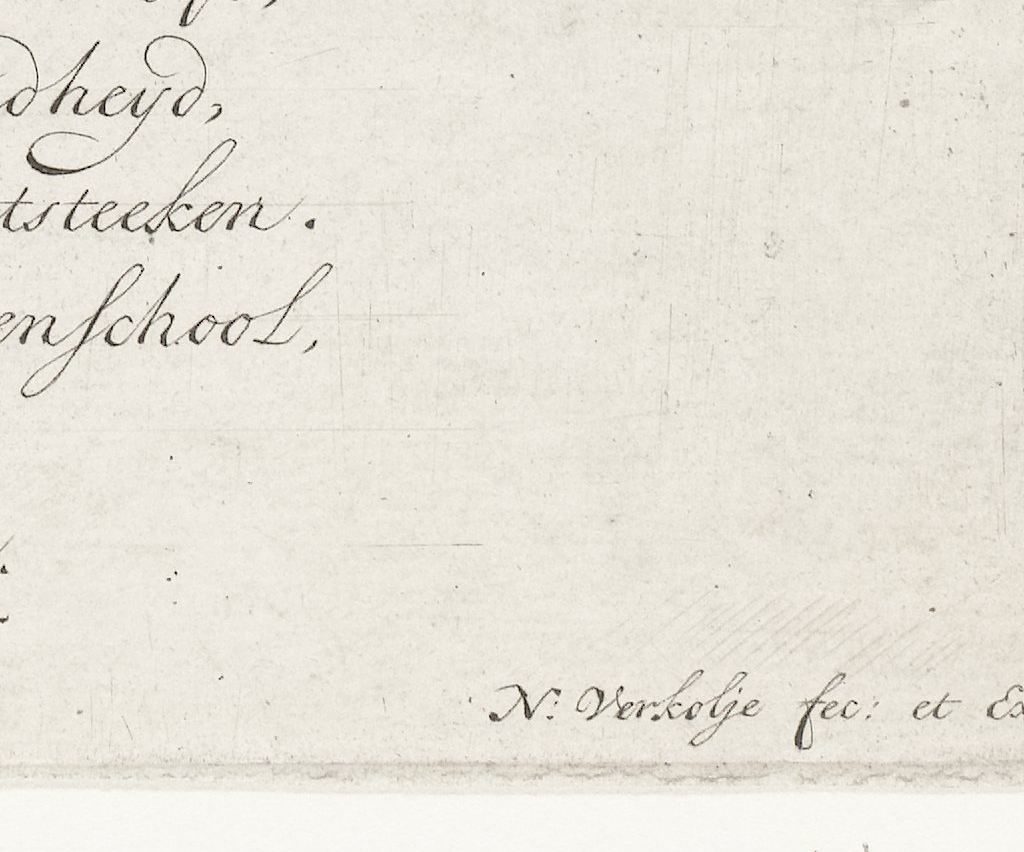 dheyd,
tsteeken.
enschool,
N: Verkolje fec: et Ex